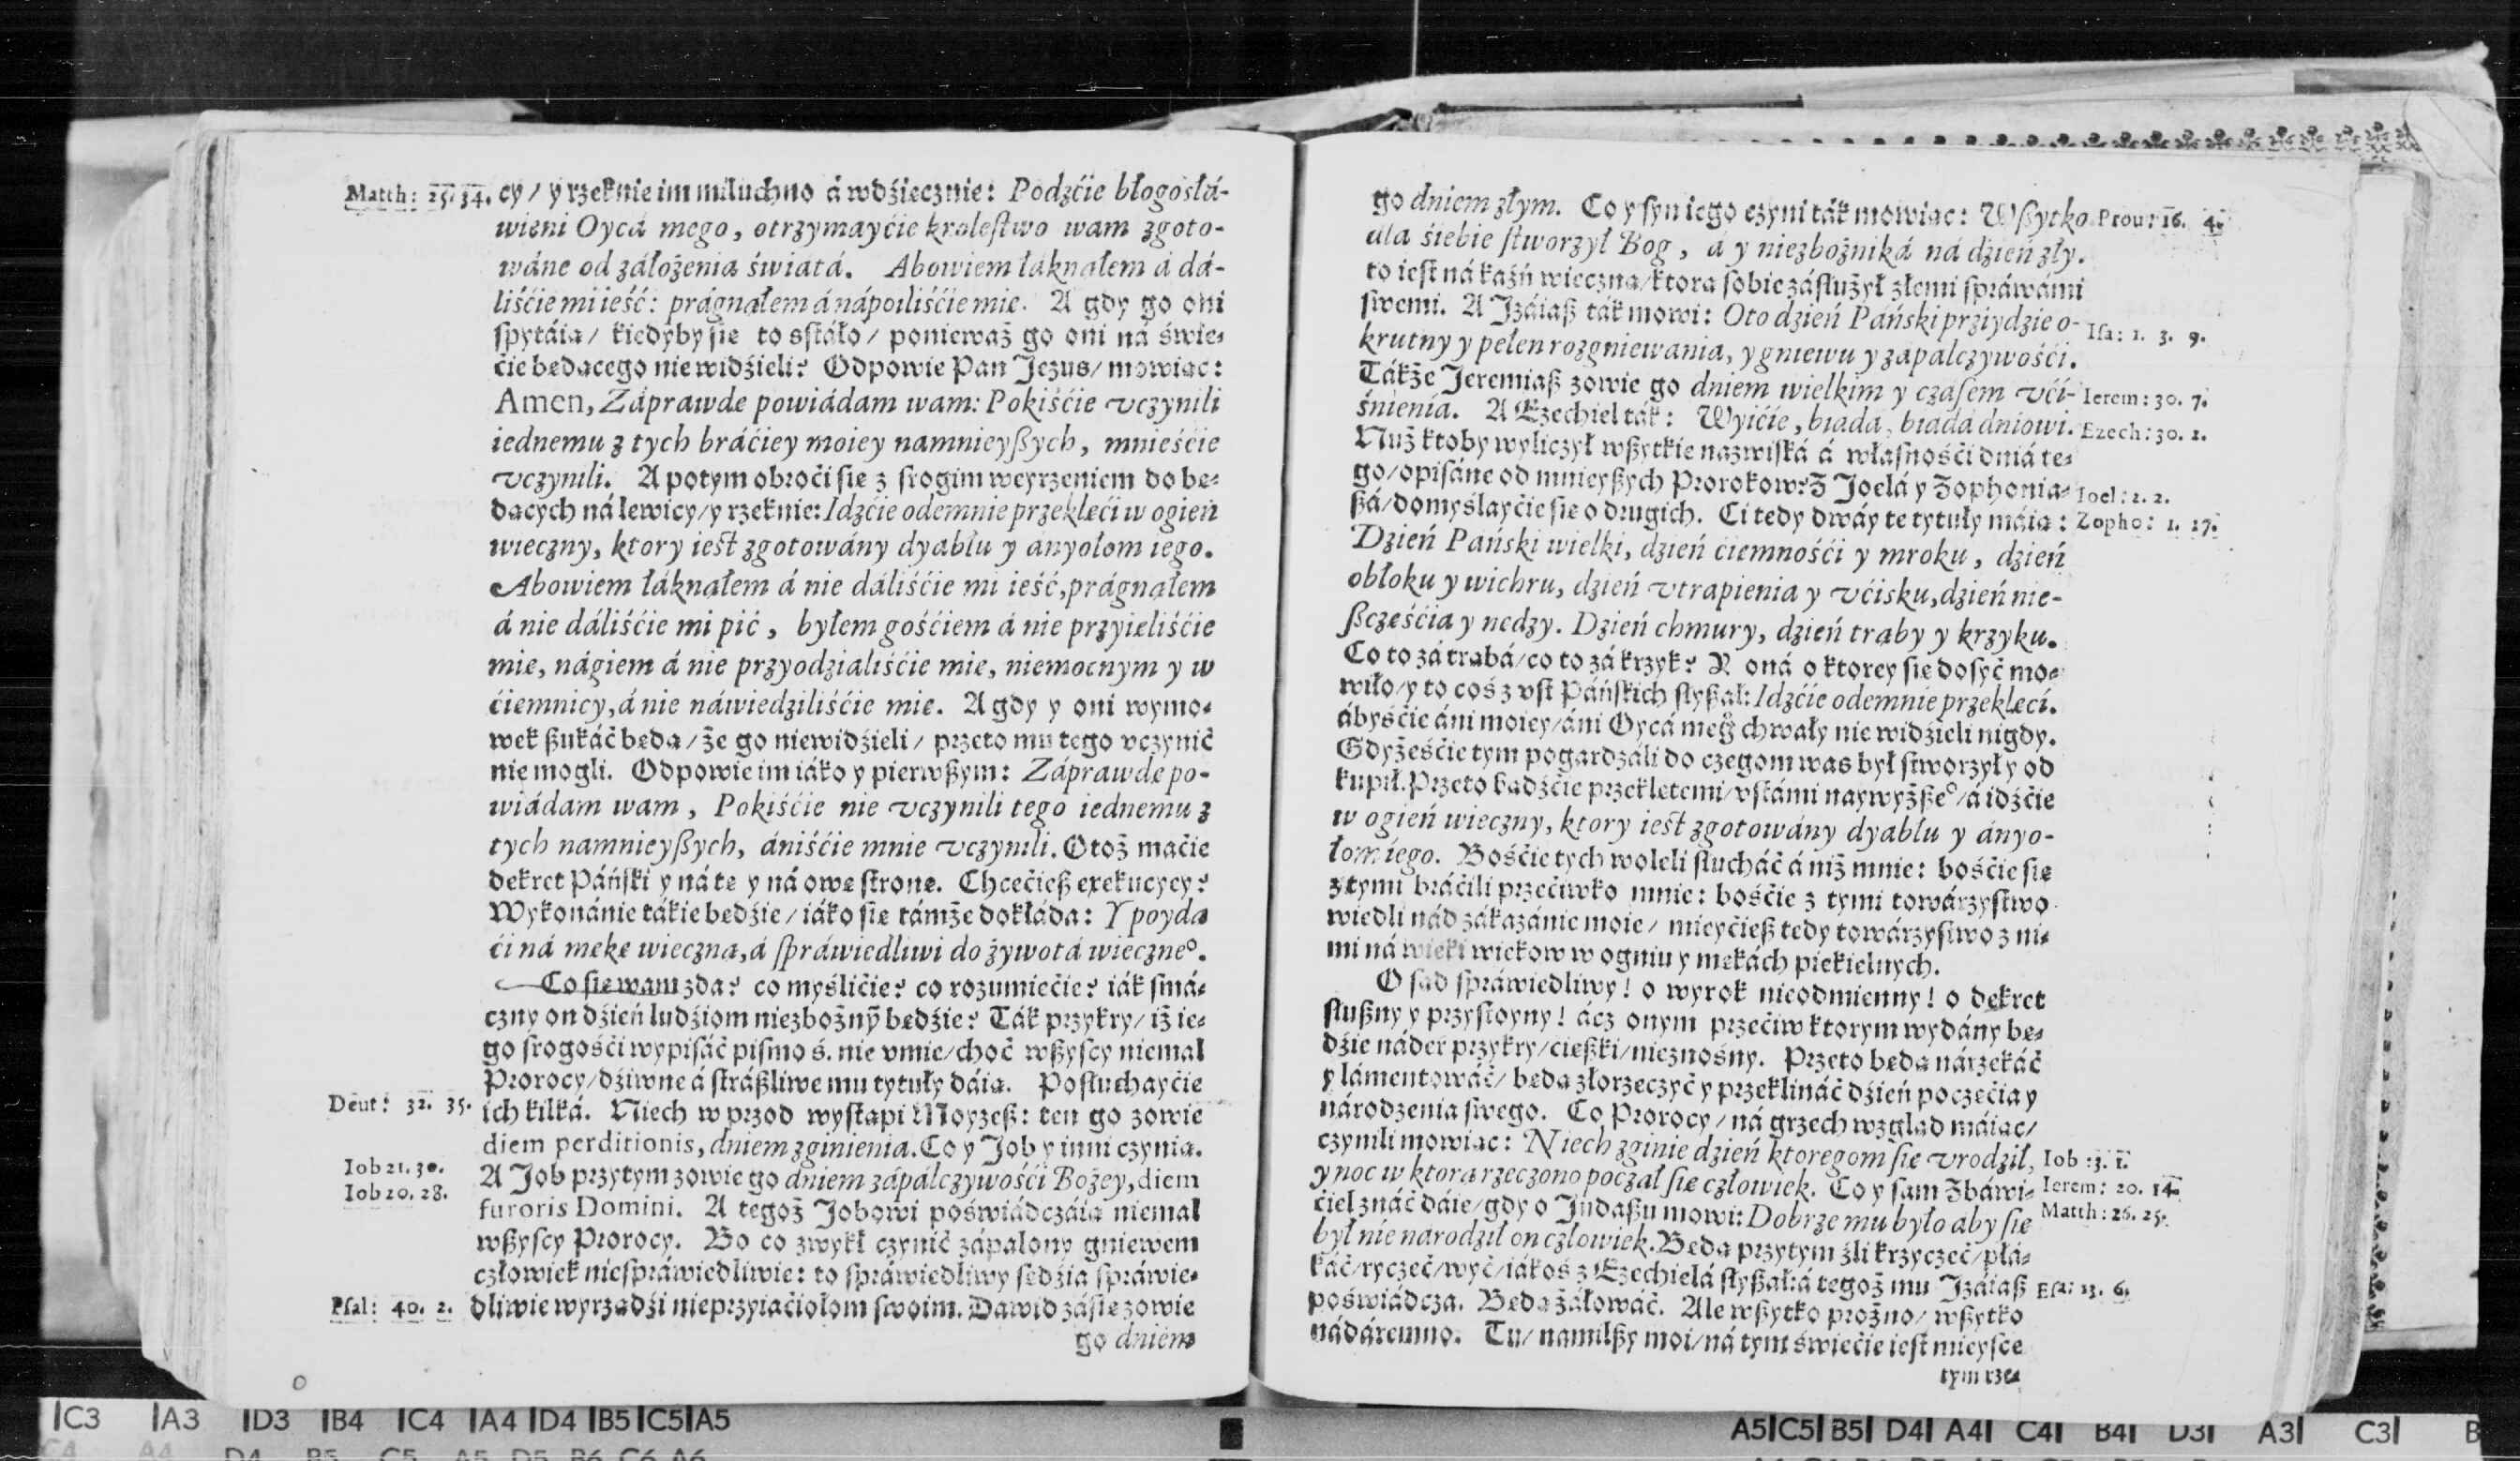 Matth: 25. 34.
cy/ y rzeknie im miluchno á wdźiecznie: Podzćie błogosłá-
wieni Oycá mego, otrzymayćie kroleſtwo wam zgoto-
wáne od záłożenia świátá. Abowiem łáknąłem á dá-
liśćie mi ieść: prágnąłem á nápoiliśćie mie. A gdy go oni
ſpytáią/ kiedyby ſie to sſtáło/ ponieważ go oni ná świe-
ćie będącego nie widźieli? Odpowie Pan Jezus/ mowiąc:
Amen, Záprawdę powiádam wam: Pokiśćie vczynili
iednemu z tych bráćiey moiey namnieyßych, mnieśćie
vczynili. A potym obroći ſie z ſrogim weyrzeniem do bę-
dących ná lewicy/ y rzeknie: Idzćie odemnie przeklęći w ogień
wieczny, ktory ieſt zgotowány dyabłu y ányołom iego.
Abowiem łáknąłem á nie dáliśćie mi ieść, prágnąłem
á nie dáliśćie mi pić, byłem gośćiem á nie przyięliśćie
mie, nágiem á nie przyodzialiśćie mie, niemocnym y w
ćiemnicy, á nie náwiedziliśćie mie. A gdy y oni wymo-
wek ßukáć będą/ że go niewidźieli/ przeto mu tego vczynić
nie mogli. Odpowie im iáko y pierwßym: Záprawdę po-
wiádam wam, Pokiśćie nie vczynili tego iednemu z
tych namnieyßych, ániśćie mnie vczynili. Otoż maćie
dekret Páńſki y ná tę y ná owę ſtronę. Chcećieß exekucycy?
Wykonánie tákie będźie/ iáko ſie támże dokłáda: Y poydą
ći ná mękę wieczną, á ſpráwiedliwi do żywotá wieczneº.
Co ſie wam zda? co myślićie? co rozumiećie? iák ſmá-
czny on dźień ludźiom niezbożnỹ będźie? Ták przykry/ iż ie-
go ſrogośći wypiſáć piſmo ś. nie vmie/ choć wßyſcy niemal
Prorocy/ dźiwne á ſtráßliwe mu tytuły dáią. Poſłuchayćie
Deut: 32. 35.
ich kilká. Niech w przod wyſtąpi Moyzeß: ten go zowie
diem perditionis, dniem zginienia. Co y Job y inni czynią.
Iob 21. 30.
A Job przytym zowie go dniem zápálczywośći Bożey, diem
Iob 20. 28.
furoris Domini. A tegoż Jobowi poświádczáią niemal
wßyſcy Prorocy. Bo co zwykł czynić zápalony gniewem
człowiek nieſpráwiedliwie: to ſpráwiedliwy ſędźia ſpráwie-
Pſal: 40. 2.
dliwie wyrządźi nieprzyiaćiołom ſwoim. Dawid záſię zowie
go dniem
go dniem złym. Co y ſyn iego czyni ták mowiąc: Wßytko
Prou: 16. 4.
dla śiebie ſtworzył Bog, á y niezbożniká ná dzień zły.
to ieſt ná kaźń wieczną/ ktorą ſobie záſłużył złemi ſpráwámi
ſwemi. A Jzáiaß ták mowi: Oto dzień Páński przyidzie o-
Iſa: 1. 3. 9.
krutny y pełen rozgniewania, y gniewu y zápalczywośći.
Tákże Jeremiaß zowie go dniem wielkim y czáſem vći-
Ierem: 30. 7.
śnienia. A Ezechiel ták: Wyićie, biádá, biádá dniowi.
Ezech: 30. 2.
Nuż ktoby wyliczył wßytkie nazwiſká á właſnośći dniá te-
go/ opiſáne od mnieyßych Prorokow? Z Joelá y Zophonia-
Ioel: 2. 2.
ßá/ domyślayćie ſie o drugich. Ci tedy dwáy te tytuły máią:
Zopho: 1. 17.
Dzień Pański wielki, dzień ćiemnośći y mroku, dzień
obłoku y wichru, dzień vtrapienia y vćisku, dzień nie-
ßczęśćia y nędzy. Dzień chmury, dzień trąby y krzyku.
Co to zá trąbá/ co to zá krzyk? Y oná o ktorey ſie doſyć mo-
wiło/ y to coś z vſt Páńſkich ſłyßał: Idzćie odemnie przeklęći.
ábyśćie áni moiey/ áni Oycá meg° chwały nie widźieli nigdy.
Gdyżeśćie tym pogardzáli do czegom was był ſtworzył y od
kupił. Przeto bądźćie przeklętemi/ vſtámi naywyżße°/ á idźćie
w ogień wieczny, ktory ieſt zgotowány dyabłu y ányo-
łom iego. Bośćie tych woleli ſłucháć á niż mnie: bośćie ſie
z tymi bráćili przećiwko mnie: bośćie z tymi towárzyſtwo
wiedli nád zákazánie moie/ mieyćieß tedy towárzyſtwo z ni-
mi ná wieki wiekow w ogniu y mękách piekielnych.
O ſąd ſpráwiedliwy! o wyrok nieodmienny! o dekret
ſłußny y przyſtoyny! ácz onym przećiw ktorym wydány bę-
dźie náder przykry/ ćießki/ nieznośny. Przeto będą nárzekáć
y lámentowáć/ będą złorzeczyć y przeklináć dźień poczęćia y
národzenia ſwego. Co Prorocy/ ná grzech wzgląd máiąc/
czynili mowiąc: Niech zginie dzień ktoregom ſie vrodził,
Iob: 3. 1.
y noc w ktorą rzeczono począł ſie człowiek. Co y ſam Zbáwi-
Ierem: 20. 14.
ćiel znáć dáie/ gdy o Judaßu mowi: Dobrze mu było aby ſie
Matth: 26. 25.
był nie národził on człowiek. Będą przytym źli krzyczeć/ płá-
káć/ ryczeć/ wyć/ iákoś z Ezechielá ſłyßał: á tegoż mu Jzáiaß
Eſa: 13. 6.
poświádcza. Będą żáłowáć. Ale wßytko prożno/ wßytko
nádáremno. Tu/ namilßy moi/ ná tym świećie ieſt mieyſce
tym rze-
C3 A3 D3 B4 C4 A4 D4 B5 C5 A5
A5 C5 B5 D4 A4 C4 B4 D3 A3 C3 B